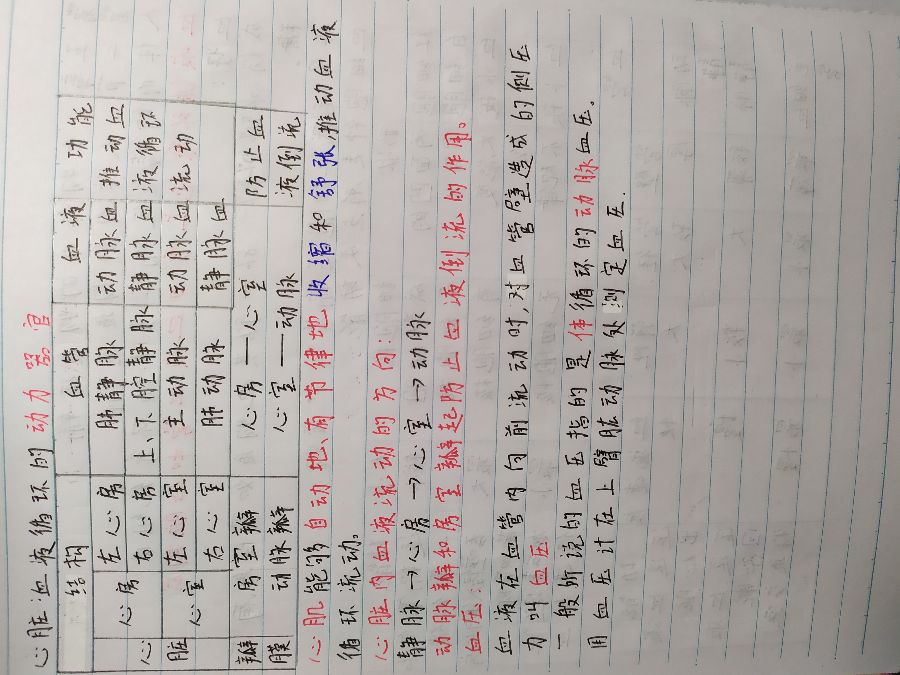 心脏:血液循环的动力器官
结构 血管 血液 功能
心脏 心房 左心房 肺静脉 动脉血 推动血液循环流动
右心房 上、下腔静脉 静脉血
心室 左心室 主动脉 动脉血
右心室 肺动脉 静脉血
瓣膜 房室瓣 心房——心室 防止血液倒流
动脉瓣 心室——动脉
心肌能够自动地、有节律地收缩和舒张,推动血液
循环流动。
心脏内血液流动的方向:
静脉→心房→心室→动脉
动脉瓣和房室瓣起防止血液倒流的作用。
血压:
血液在血管内向前流动时,对血管壁造成的侧压
力叫血压
一般所说的血压指的是体循环的动脉血压。
用血压计在上臂肱动脉处测定血压.